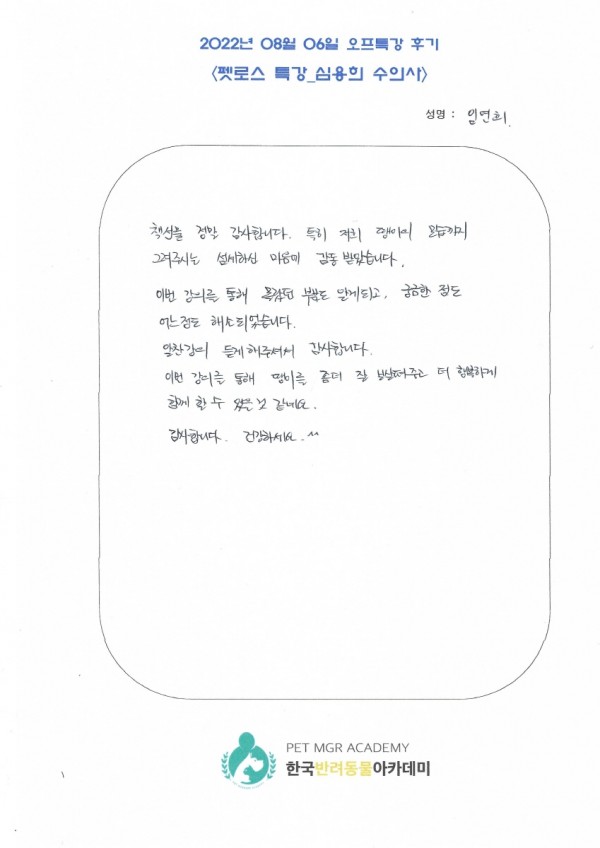 2022년 08월 06일 오프특강 후기
<펫로스 특강_심용희 수의사>
성명 : 임연희
책선물 정말 감사합니다. 특히 저희 맹이의 모습까지
그려주시는 섬세하신 마음에 감동 받았습니다.
이번 강의를 통해 몰랐던 부분도 알게되고, 궁금한 점도
어느정도 해소되었습니다.
알찬강의 듣게해주셔서 감사합니다.
이번 강의를 통해 맹이를 좀더 잘 보살펴주고 더 행복하게
함께 할 수 있을 것 같네요.
감사합니다. 건강하세요. ^^
PET MGR ACADEMY
한국반려동물아카데미